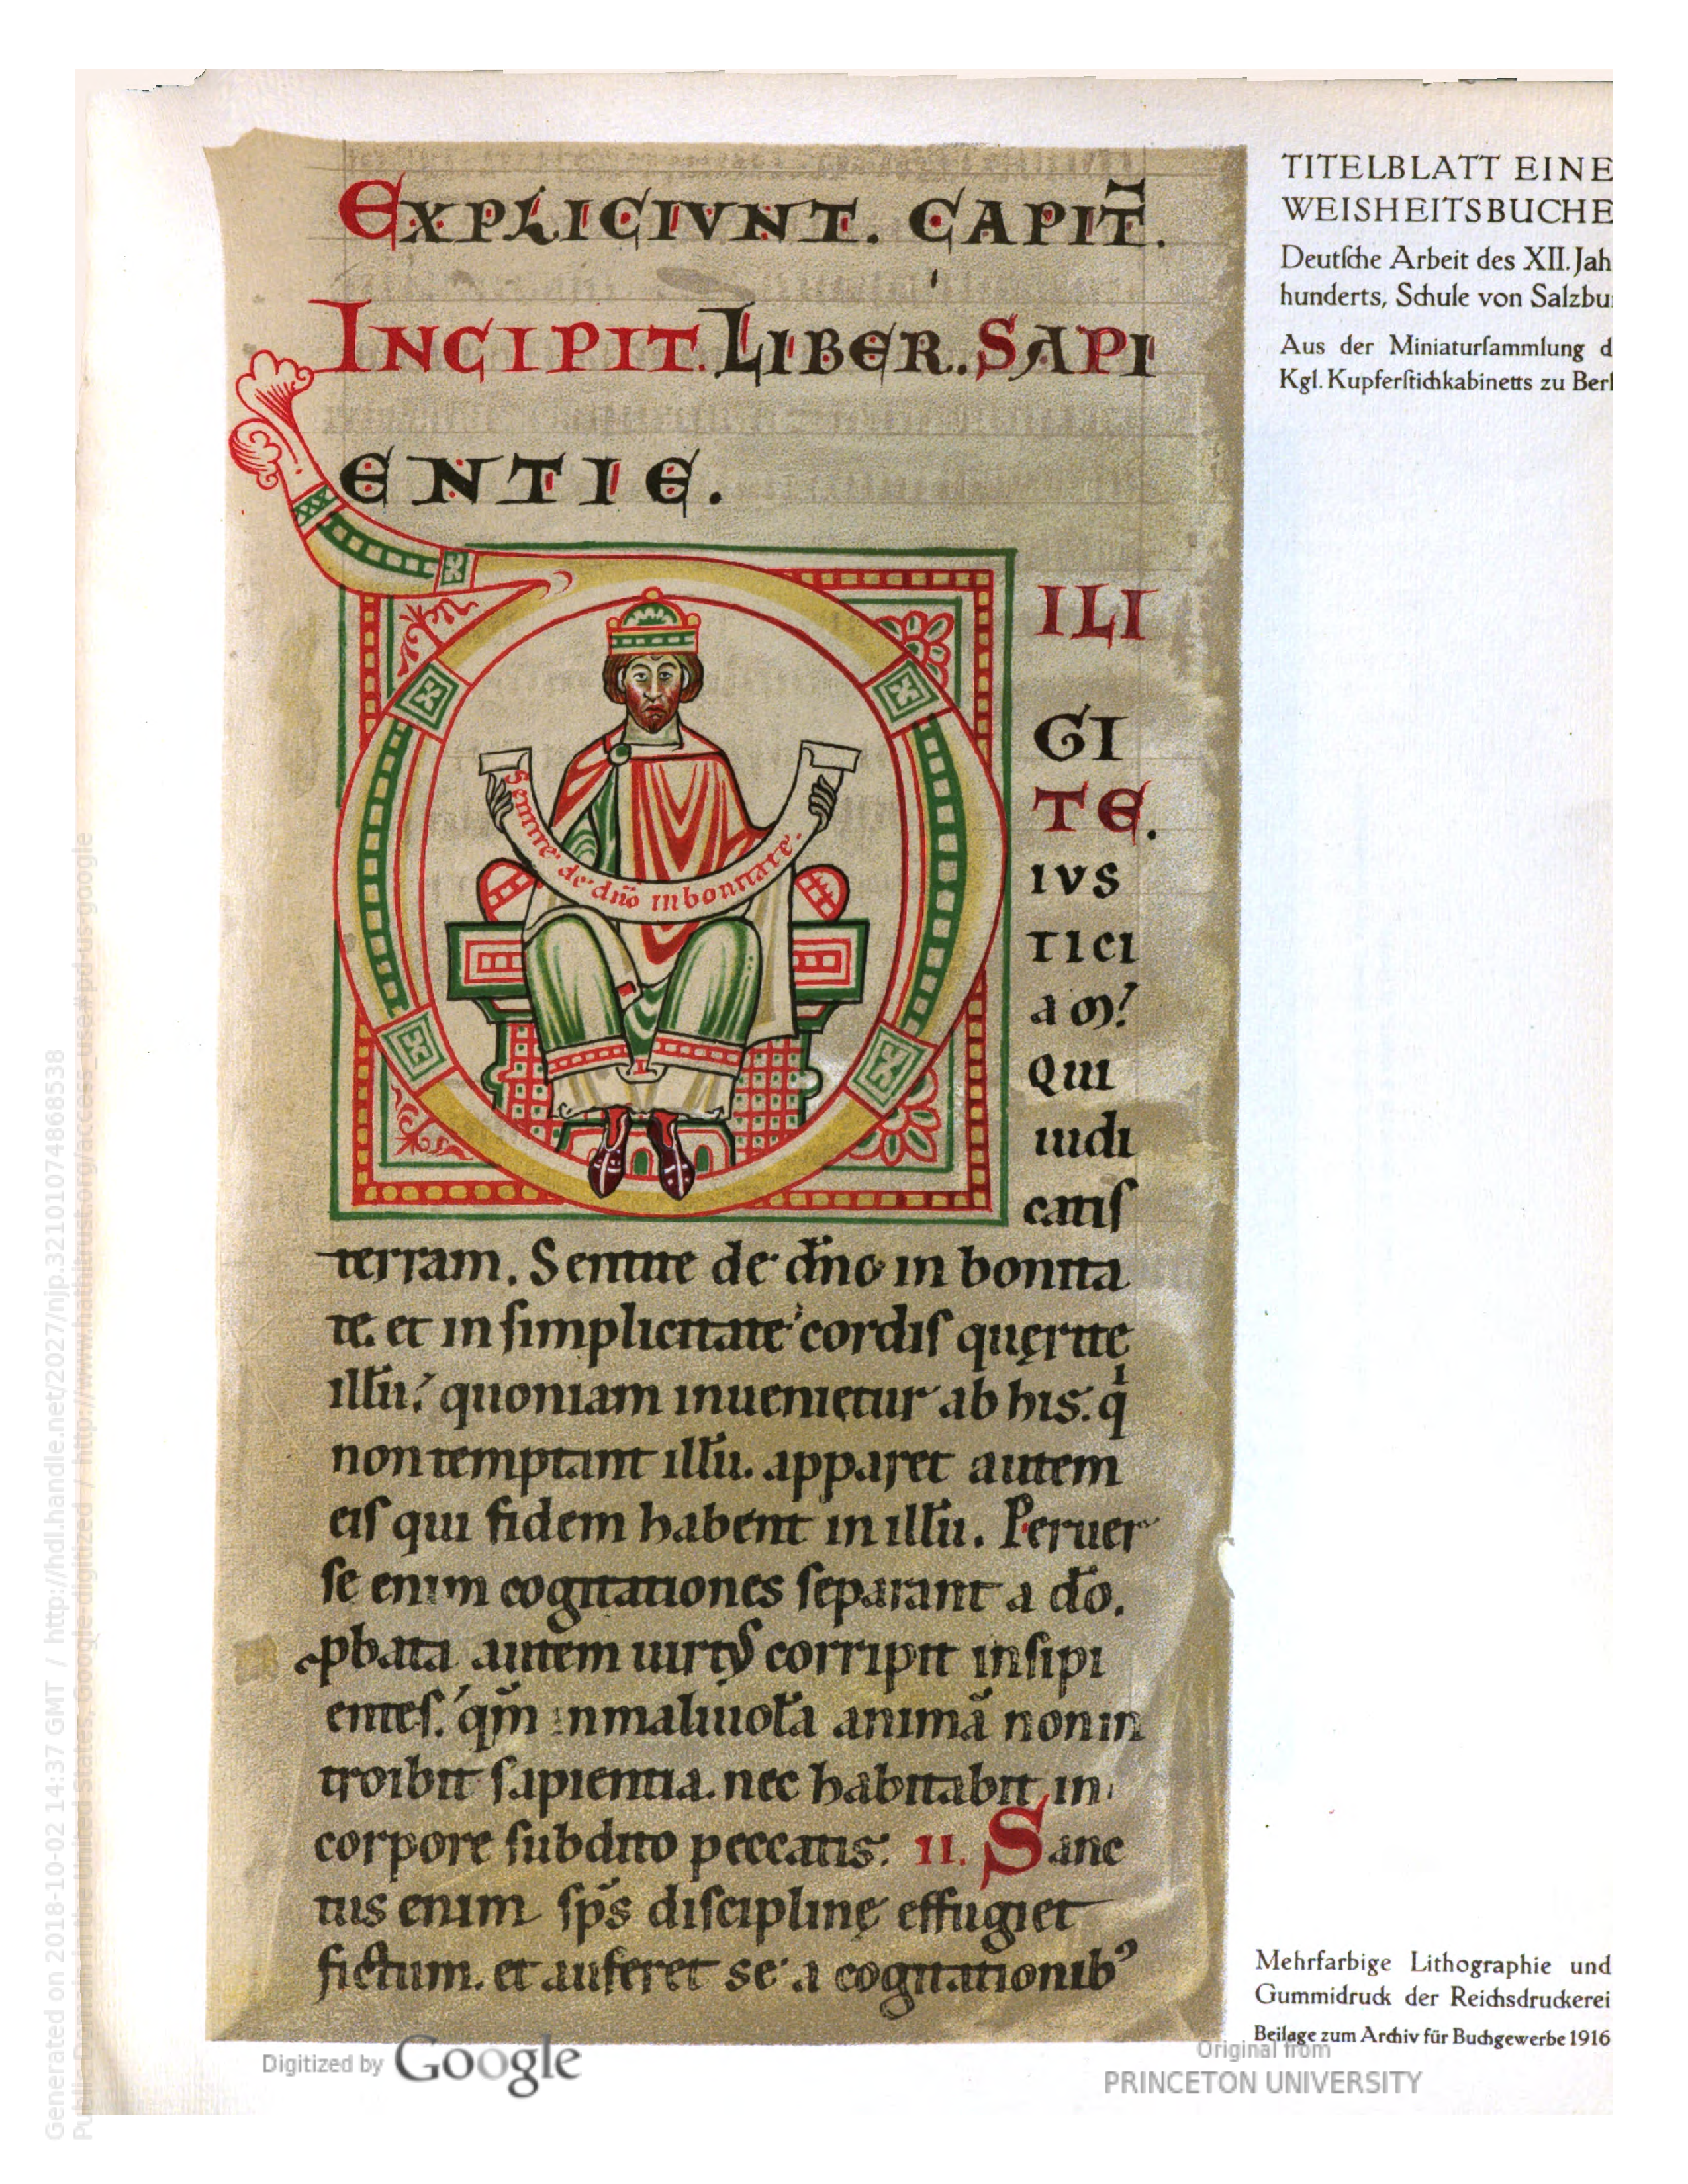 EXPLICIVNT. CAPIT̄.
INCIPIT. LIBER. SAPI
ENTIE.
ILI
GI
TE.
IVS
TICI
AM?
QUI
iudi
catiſ
Sentite de dn̄o in bonitate.
terram. Sentite de dn̄o in bonita
te. et in ſimplicitate cordiſ quęrite
illū? quoniam inuenietur ab his: q
non temptant illū. apparet autem
eiſ qui fidem habent in illū. Peruer
ſe enim cogitationes ſeparant a do̅.
pbata autem uirtꝰ corripit inſipi
enteſ. qm̄ in maliuola animā non in
troibit ſapientia. nec habitabit in
corpore ſubdito peccatis: II. Sanc
tus enim sp̄s diſcipline̜ effugiet
fictum. et auferet se a cogitationibꝰ
TITELBLATT EINE
WEISHEITSBUCHE
Deutſche Arbeit des XII. Jah
hunderts, Schule von Salzbu
Aus der Miniaturſammlung d
Kgl. Kupferſtichkabinetts zu Berl
Mehrfarbige Lithographie und
Gummidruck der Reichsdruckerei
Beilage zum Archiv für Buchgewerbe 1916
Digitized by Google
Original from
PRINCETON UNIVERSITY
Generated on 2018-10-02 14:37 GMT / http://hdl.handle.net/2027/njp.32101074868538
Public Domain in the United States, Google-digitized / http://www.hathitrust.org/access_use#pd-us-google